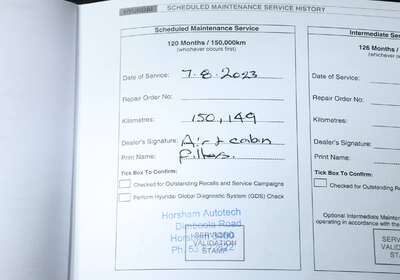 HYUNDAI SCHEDULED MAINTENANCE SERVICE HISTORY
Scheduled Maintenance Service
120 Months / 150,000km
(whichever occurs first)
Date of Service: 7-8-2023
Repair Order No:
Kilometres: 150,149
Dealer's Signature: Air & cabin
Print Name: filters.
Tick Box To Confirm:
Checked for Outstanding Recalls and Service Campaigns
Perform Hyundai Global Diagnostic System (GDS) Check
Horsham Autotech
Dimboola Road
Horsham 3400
Ph. 53
SERVICE
VALIDATION
STAMP
Intermediate Ser
126 Months /
(whichever
Date of Service:
Repair Order No:
Kilometres:
Dealer's Signature:
Print Name:
Tick Box To Confirm:
Checked for Outstanding Rec
Optional Intermediate Maintenanc
operating in accordance with the
SER
VALID
ST